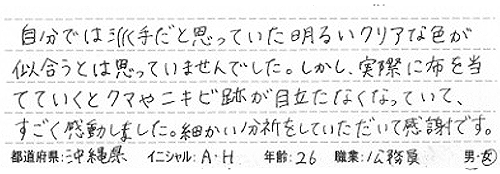 自分では派手だと思っていた明るいクリアな色が
似合うとは思っていませんでした。しかし、実際に布を当
てていくとクマやニキビ跡が目立たなくなっていて、
すごく感動しました。細かい分析をしていただいて感謝です。
都道府県:沖縄県 イニシャル:A・H 年齢:26 職業:公務員 男・女